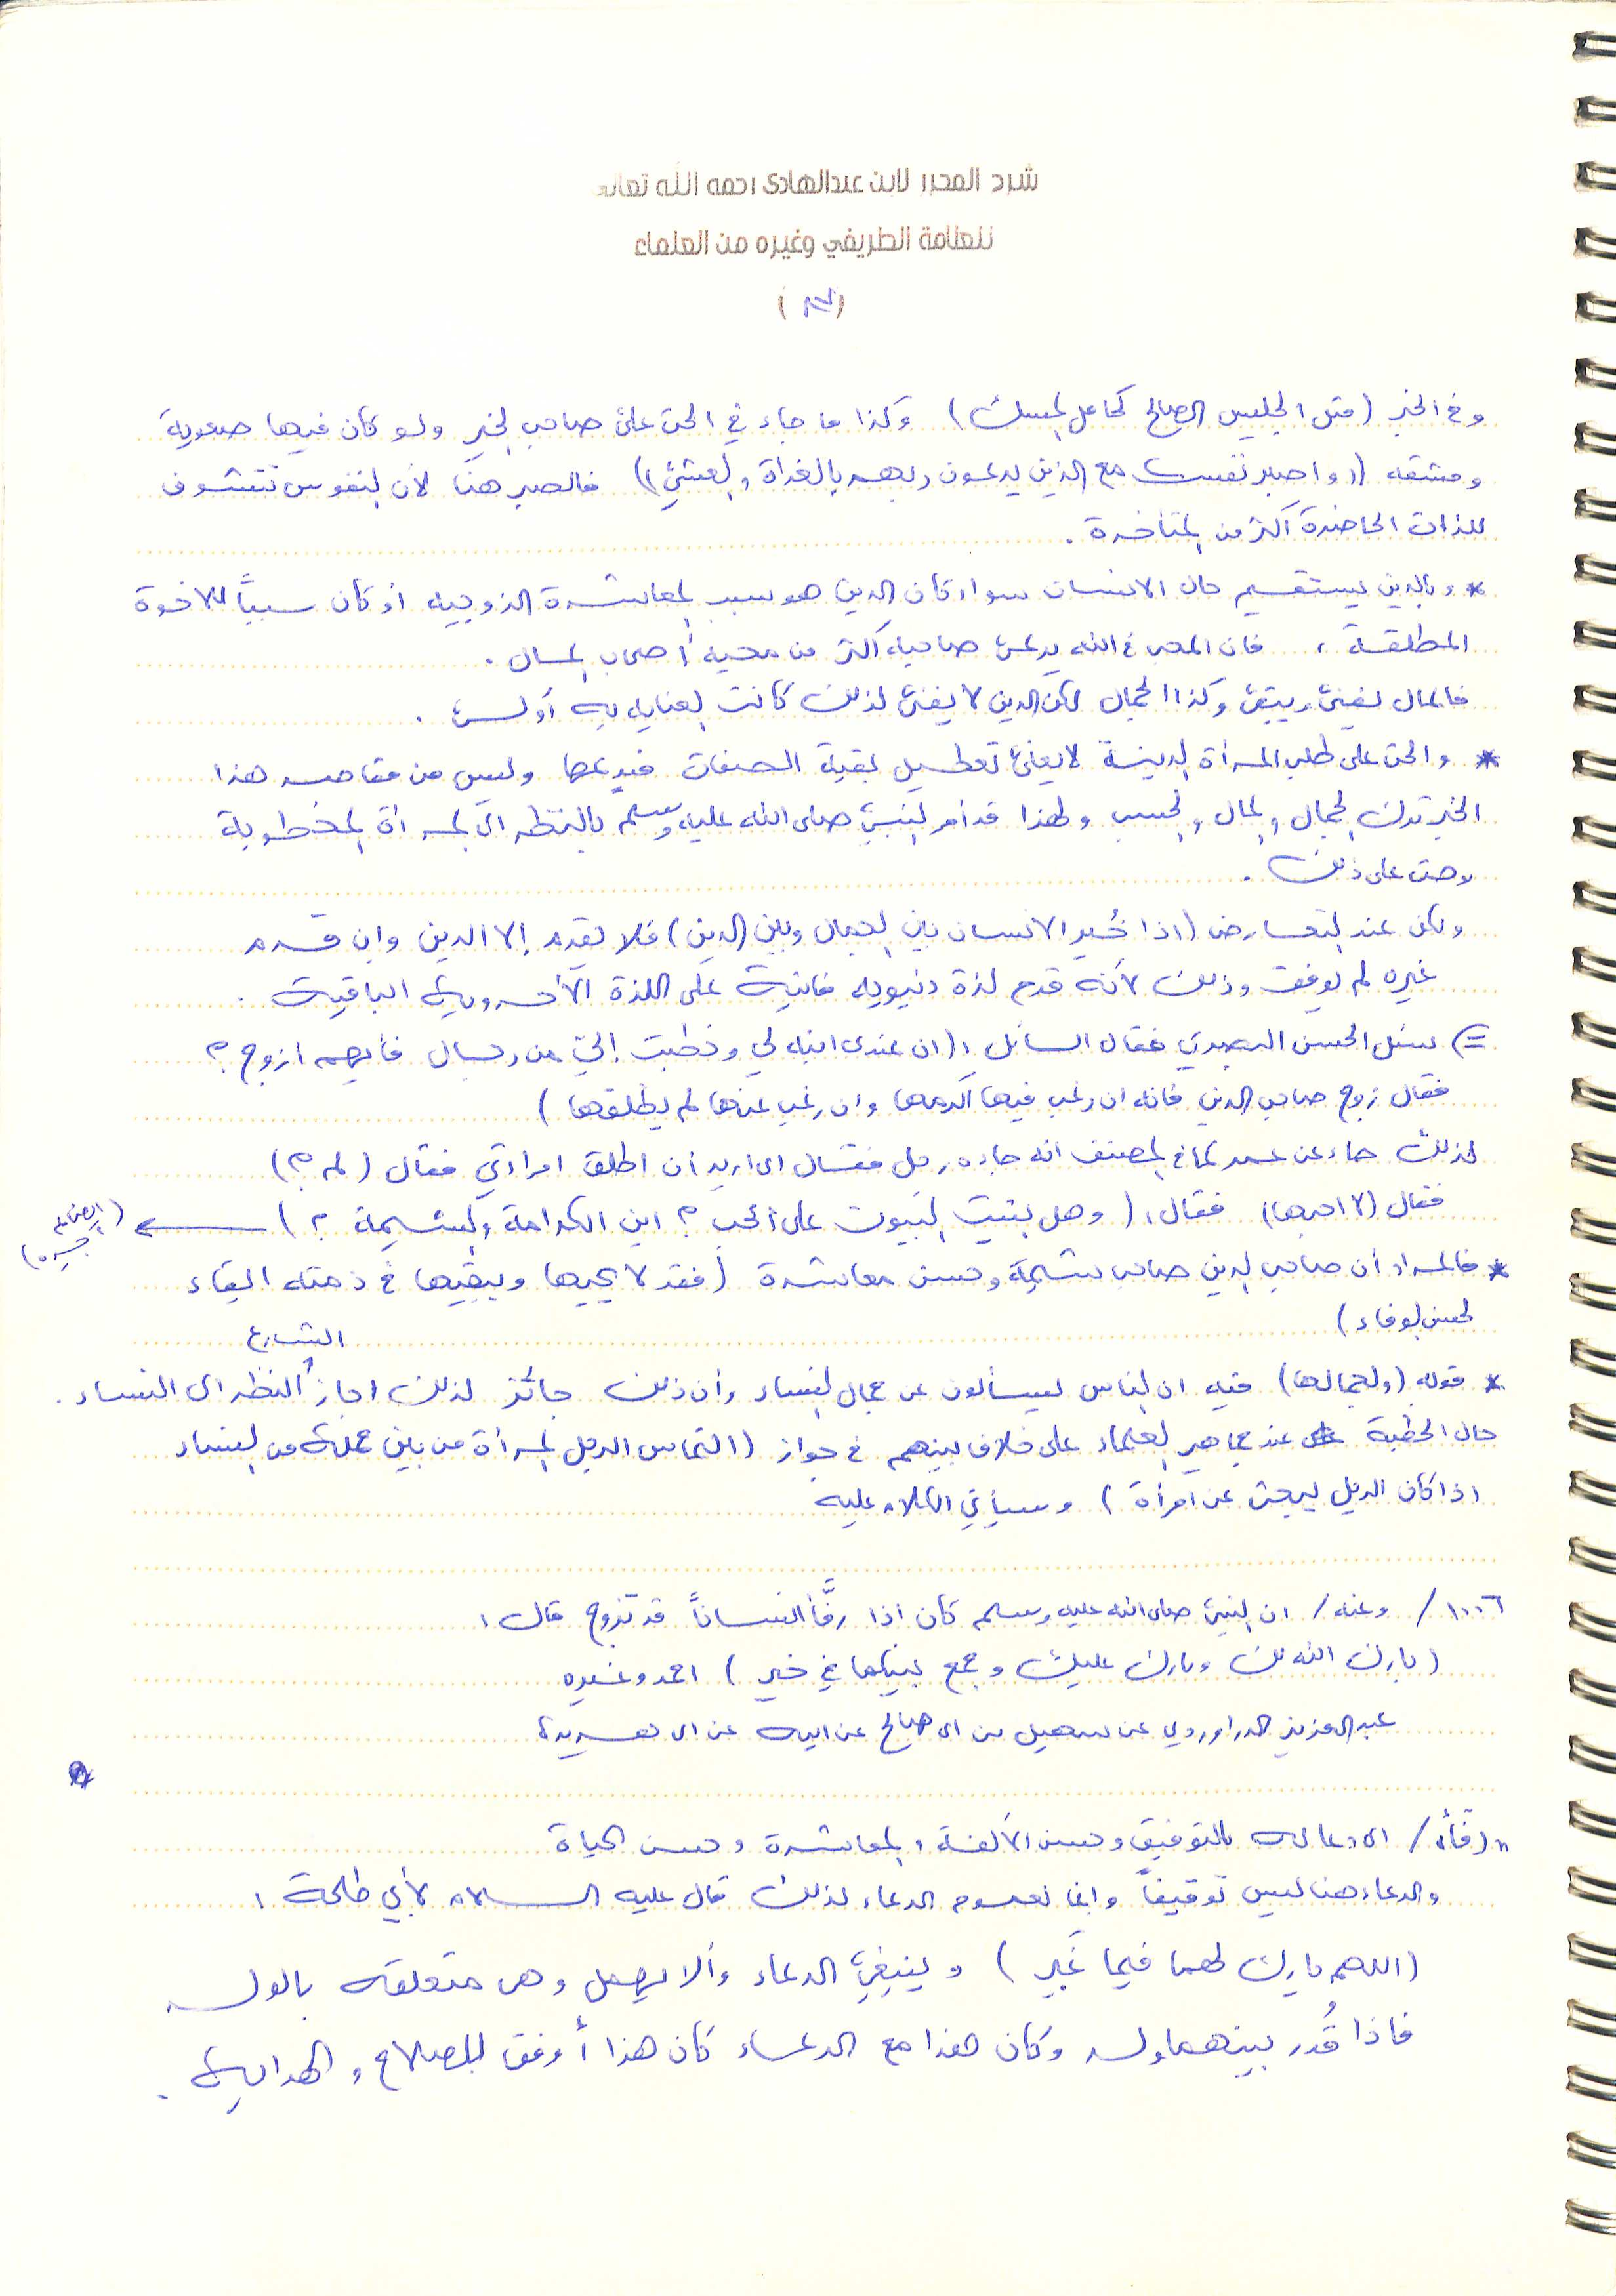 شرح المحرر لابن عبدالهادى رحمه الله تعالى
للعلامة الطريفي وغيره من العلماء
وفي الخبر (مثل الجليس الصالح كحامل المسك) وكذا ما جاء في الحث على صاحب الخير ولو كان فيها صعوبة
ومشقه ((واصبر نفسك مع الذين يدعون ربهم بالغداة والعشي)) فالصبر هنا لأن النفوس تتشوف
للذات الحاضرة أكثر من المتأخرة .
* وبالدين يستقيم حال الانسان سواء كان الدين هو سبب المعاشرة الزوجيه أو كان سبباً للاخوة
المطلقة ، فان المحب في الله يدعى صاحبه أكثر من محبه أصحاب المال .
فالمال يفنى ويبقى وكذا الجمال لكن الدين لا يفنى لذلك كانت العنايه به أولى .
* والحث على طلب المرأة الدينة لا يعني تعطيل بقية الصفات فيدعها وليس من مقاصد هذا
الخبر ترك الجمال والمال والحسب ولهذا قد أمر النبي صلى الله عليه وسلم بالنظر الى المرأة المخطوبة
وحث على ذلك .
ولكن عند التعارض (اذا خُير الانسان بين الجمال وبين الدين) فلا يقدم إلا الدين وإن قدم
غيره لم يوفق وذلك لأنه قدم لذة دنيويه فانية على اللذة الأخروية الباقية .
=) سئل الحسن البصري فقال السائل : (ان عندى ابنه لي وخطبت إليّ من رجال فأيهم أزوج ؟
فقال زوج صاحب الدين فانه ان رغب فيها اكرمها وان رغب عنها لم يطلقها )
لذلك جاء عن عمر كما في المصنف انه جاءه رجل فقال اى اريد أن اطلق امراءتي فقال ( لم ؟ )
فقال (لا احبها) فقال : ( وهل بنيت البيوت على الحب ؟ اين الكرامة والشيمة ؟ )
* فالمراد أن صاحب الدين صاحب شيمة وحسن معاشرة (فقد لا يحبها ويبقيها في ذمته البقاء
لحسن الوفاء )
الشارع
* قوله (ولجمالها) فيه ان الناس ليسألون عن جمال النساء وأن ذلك جائز لذلك اجاز النظر الى النساء .
حال الخطبة عند جماهير العلماء على خلاف بينهم في جواز (التماس الرجل المرأة من بين جملة من النساء
اذا كان الرجل ليبحث عن امرأة ) وسيأتي الكلام عليه
١٠٠٦ / وعنه / ان النبي صلى الله عليه وسلم كان اذا رفَّأ انساناً قد تزوج قال :
(بارك الله لك وبارك عليك وجمع بينكما في خير ) احمد وغيره
عبد العزيز الدراوردي عن سهيل بن ابى صالح عن ابيه عن ابى هريرة
" رفّأ / اى دعا له بالتوفيق وحسن الألفة والمعاشرة وحسن الحياة
والدعاء هنا ليس توقيفاً وانما لعموم الدعاء لذلك قال عليه السلام لأبي طلحة :
(اللهم بارك لهما فيما غَبر ) وينبغي الدعاء وألا يهمل وهى متعلقه بالولد
فاذا قُدر بينهما ولد وكان هذا مع الدعاء كان هذا أوفق للصلاح والهداية .